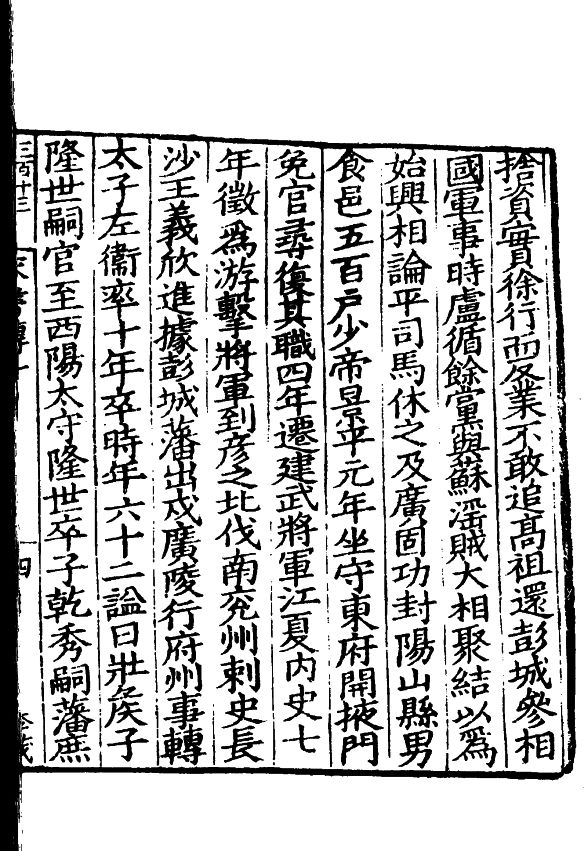 捨資實徐行而業不敢追高祖還彭城參相
國軍事時盧循餘黨與蘇淫賊大相聚結以爲
始興相論平司馬休之及廣固功封陽山縣男
食邑五百戶少帝景平元年坐守東府開掖門
免官尋復其職四年遷建武將軍江夏內史七
年徵爲游擊將軍到彦之北伐南兖州刺史長
沙王義欣進據彭城藩出戍廣陵行府州事轉
太子左衞率十年卒時年六十二謚曰壯矦子
隆世嗣官至西陽太守隆世卒子乾秀嗣藩庶
三百十三
四